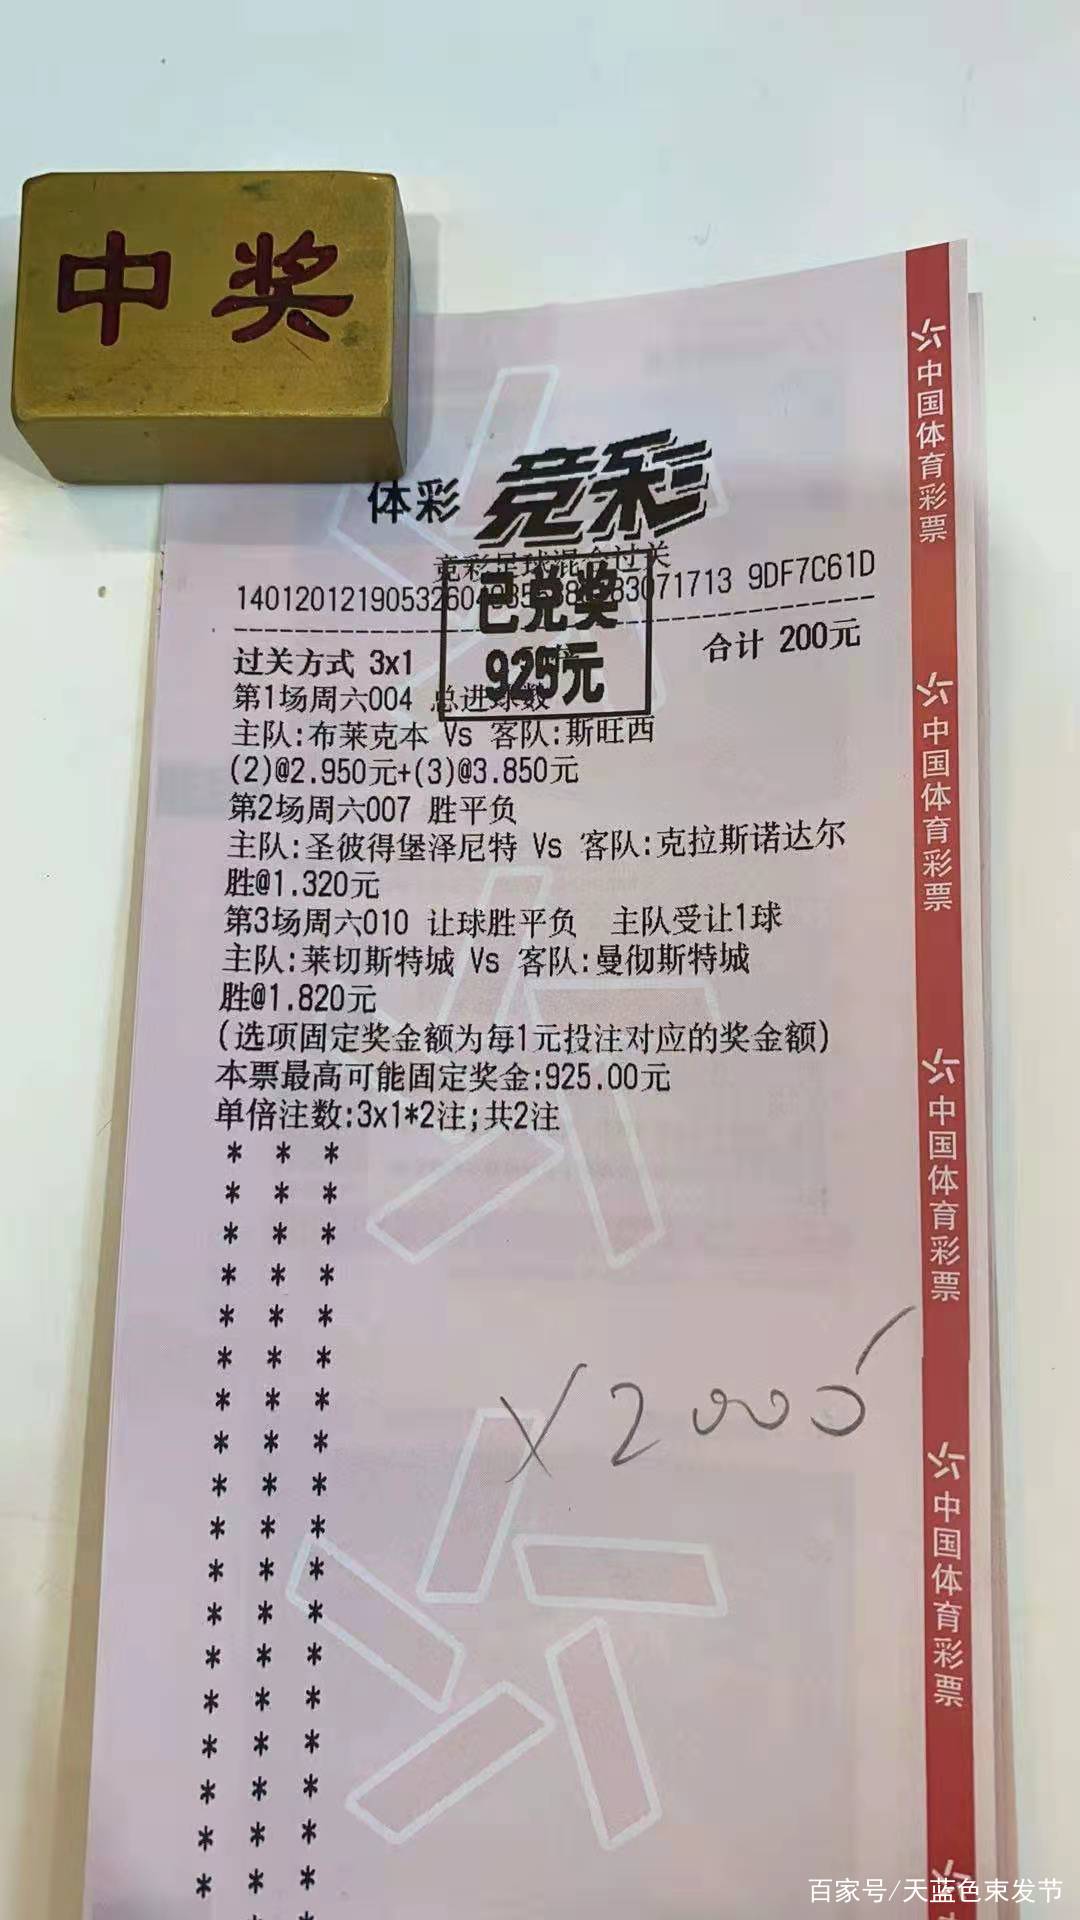 中奖
体彩 竞彩
竞彩足球混合过关
9DF7C61D
已兑奖
925元
过关方式 3x1
合计 200元
第1场周六004 总进球数
主队:布莱克本 Vs 客队:斯旺西
(2)@2.950元+(3)@3.850元
第2场周六007 胜平负
主队:圣彼得堡泽尼特 Vs 客队:克拉斯诺达尔
胜@1.320元
第3场周六010 让球胜平负 主队受让1球
主队:莱切斯特城 Vs 客队:曼彻斯特城
胜@1.820元
(选项固定奖金额为每1元投注对应的奖金额)
本票最高可能固定奖金:925.00元
单倍注数:3x1*2注;共2注
* * *
* * *
* * *
* * *
* * *
* * *
* * *
* * *
* * *
* * *
* * *
* * *
* * *
* * *
* * *
* * *
* * *
* * *
* * *
X2000
中国体育彩票
中国体育彩票
中国体育彩票
中国体育彩票
中
百家号/天蓝色束发节